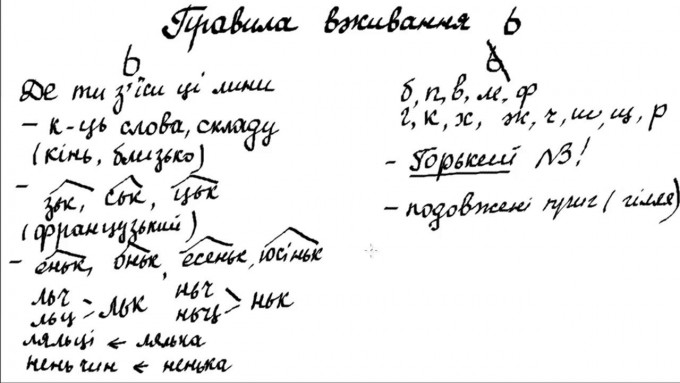 Правила вживання ь
ь
Де ти з'їси ці лини
– к-ць слова, складу
(кінь, близько)
– зьк, ськ, цьк
(французький)
– еньк, оньк, есеньк, юсіньк
льч
льц > льк
ньч
ньц > ньк
ляльці ← лялька
неньчин ← ненька
ь
б, п, в, м, ф
г, к, х, ж, ч, ш, щ, р
– Горький №3!
– подовжені приг (гілля)